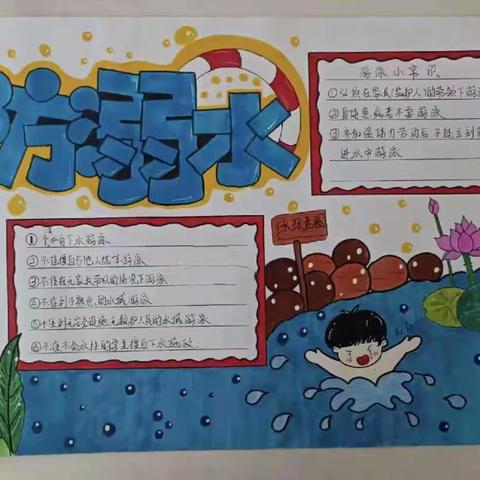 防溺水
游泳小常识
①必须在家长(监护人)的带领下游泳
②身体患病者不要游泳
③参加强体力劳动后不能立到
进水中游泳
水深危险
①不私自下水游泳
②不准擅自与他人结伴游泳
③不准在无家长带队的情况下游泳
④不准到不熟悉的水域游泳
⑤不准到无安全设施无救护人员的水域游泳
⑥不准不会水性的学生擅自下水施救.